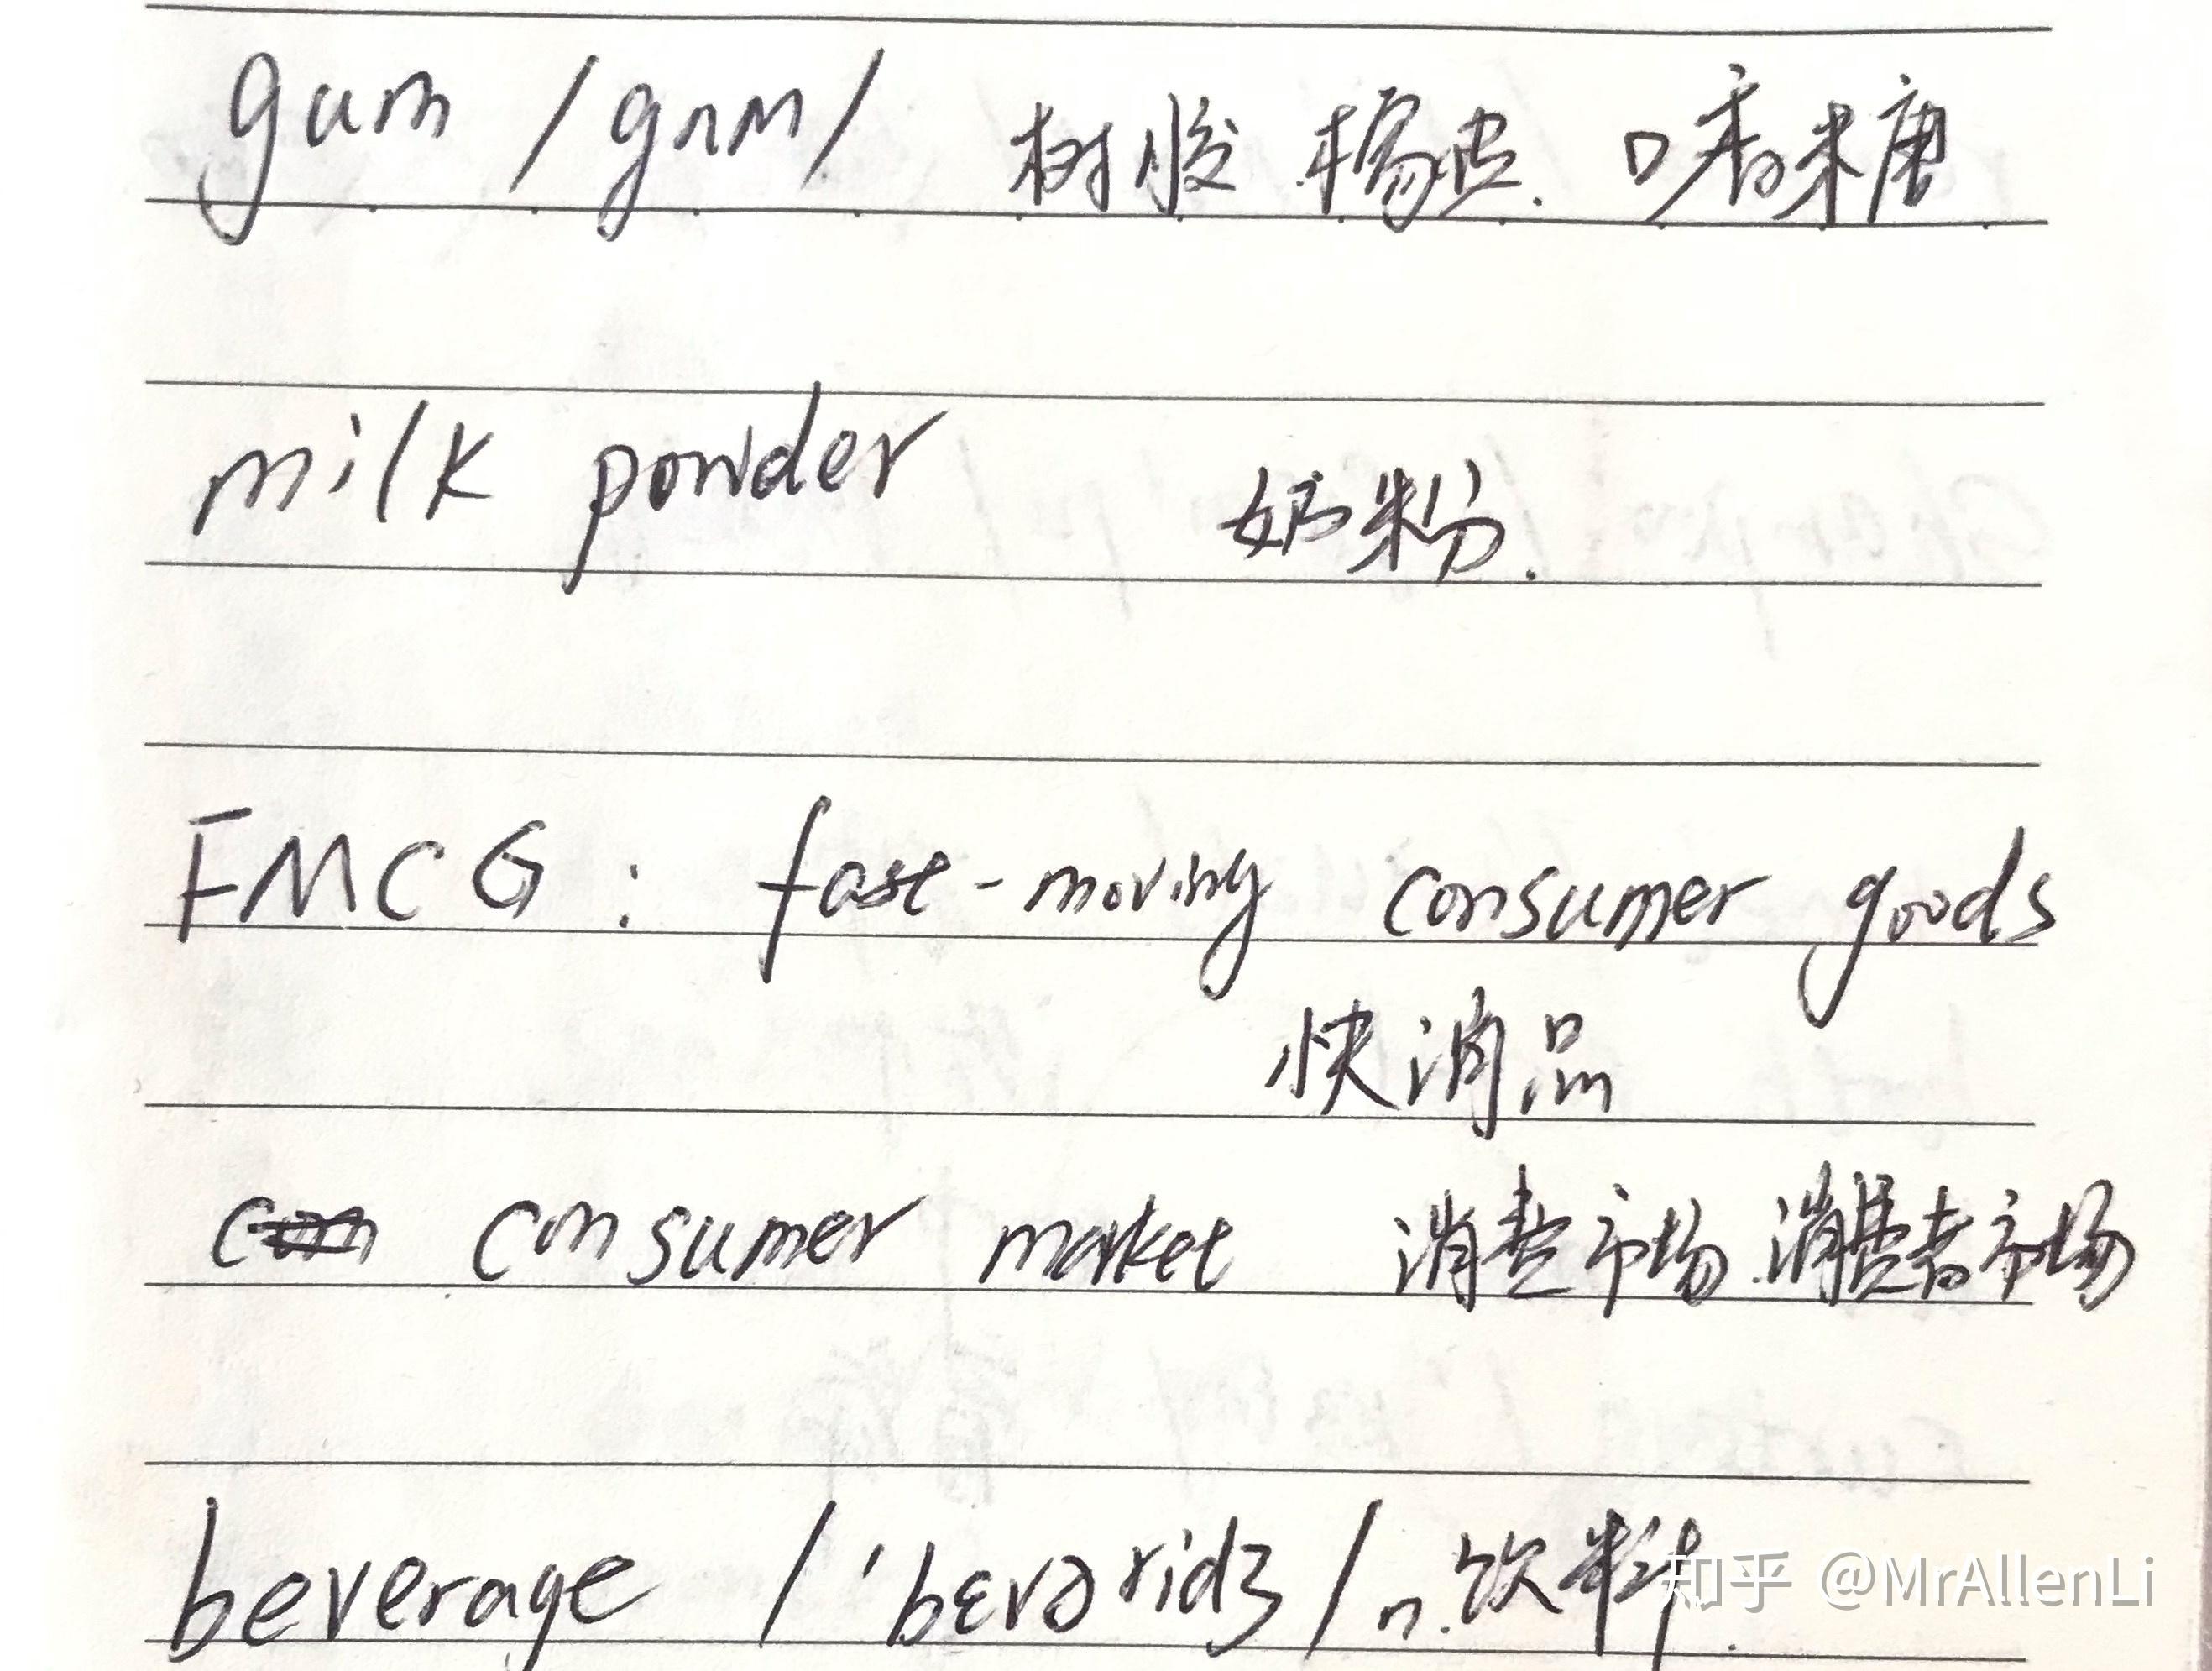 gum /gʌm/ 树胶 橡皮. 口香糖
milk powder 奶粉.
FMCG : fast-moving consumer goods
快消品
consumer market 消费市场.消费者市场
beverage /'bevəridʒ/ n.饮料.
知乎 @MrAllenLi